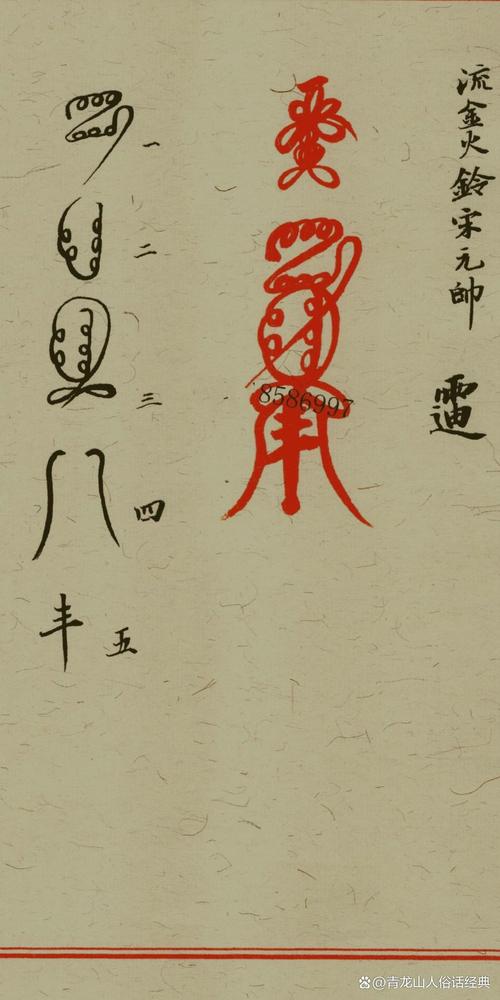 流金火鈴宋元帥
8586997
一
二
三
四
丰 五
@青龙山人俗话经典